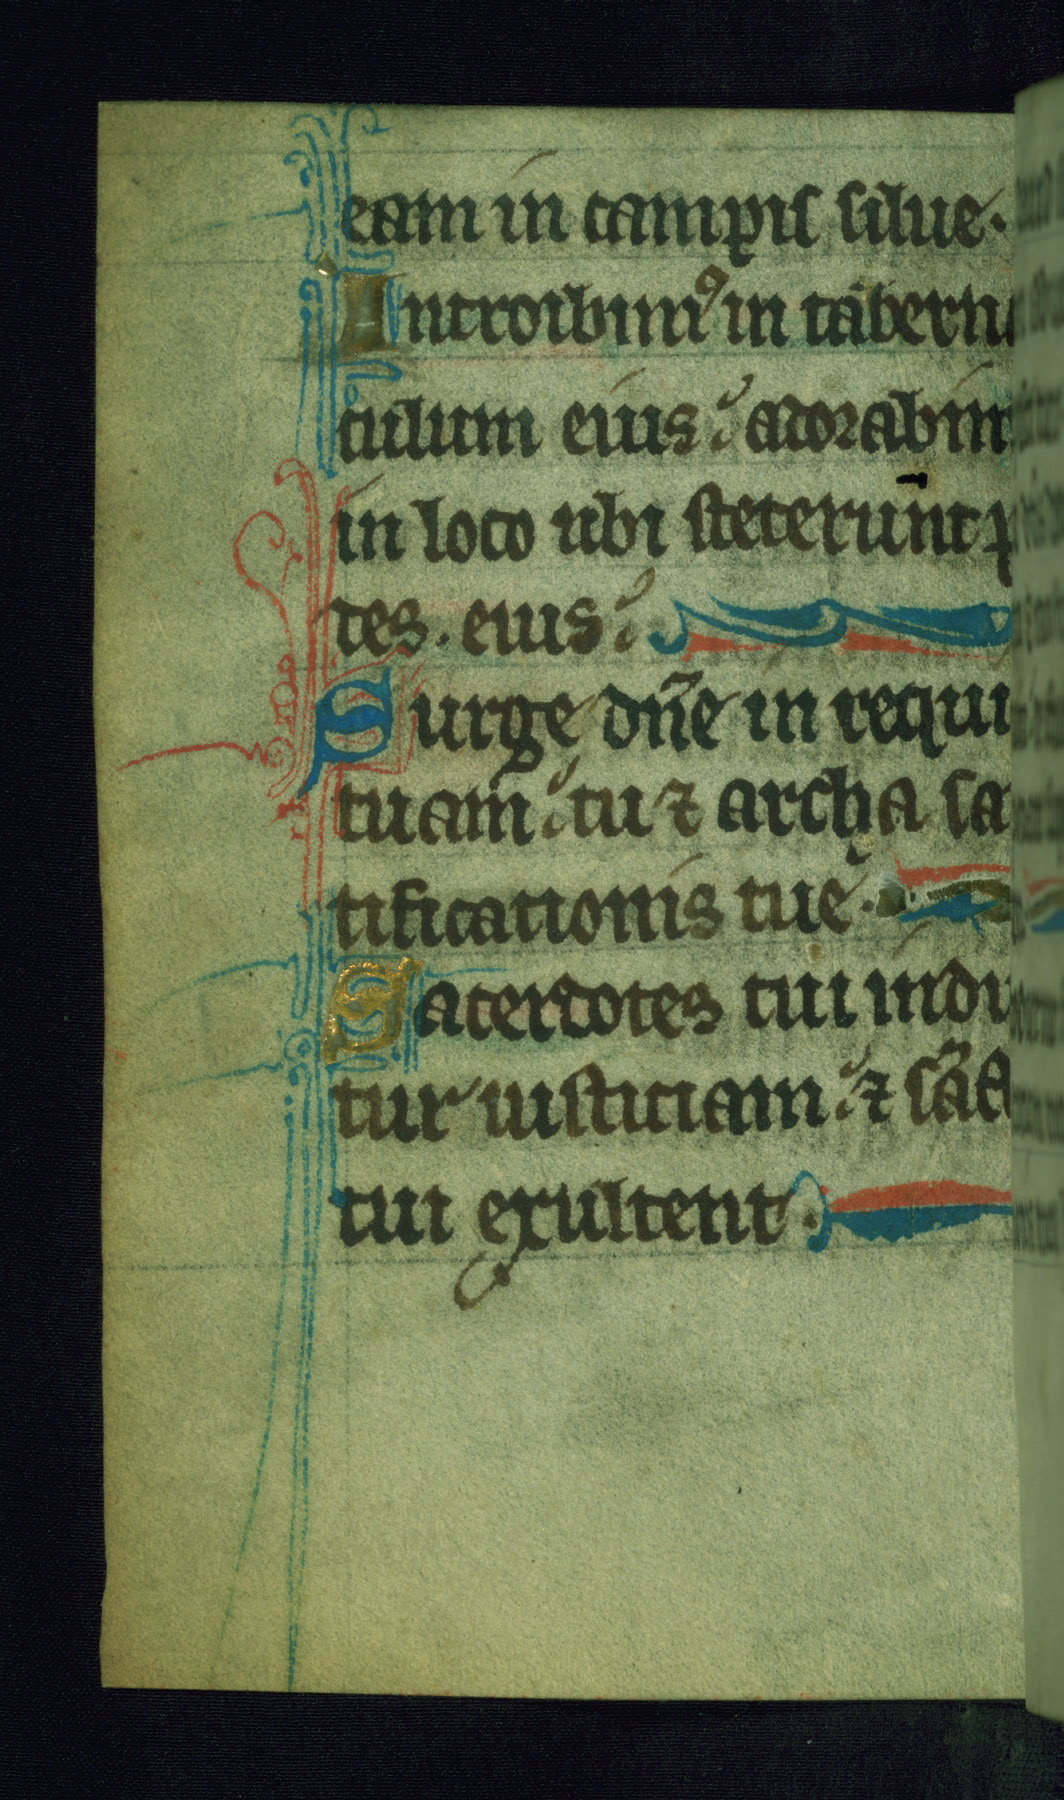 eam in campis silue.
Introibimꝰ in taberna
culum eius: adorabim
in loco ubi steterunt p
des. eius:
Surge dn̄e in requi
tuam: tu ⁊ archa sa
tificationis tue.
Sacerdotes tui indu
tur iusticiam: ⁊ sc̄i
tui exultent.